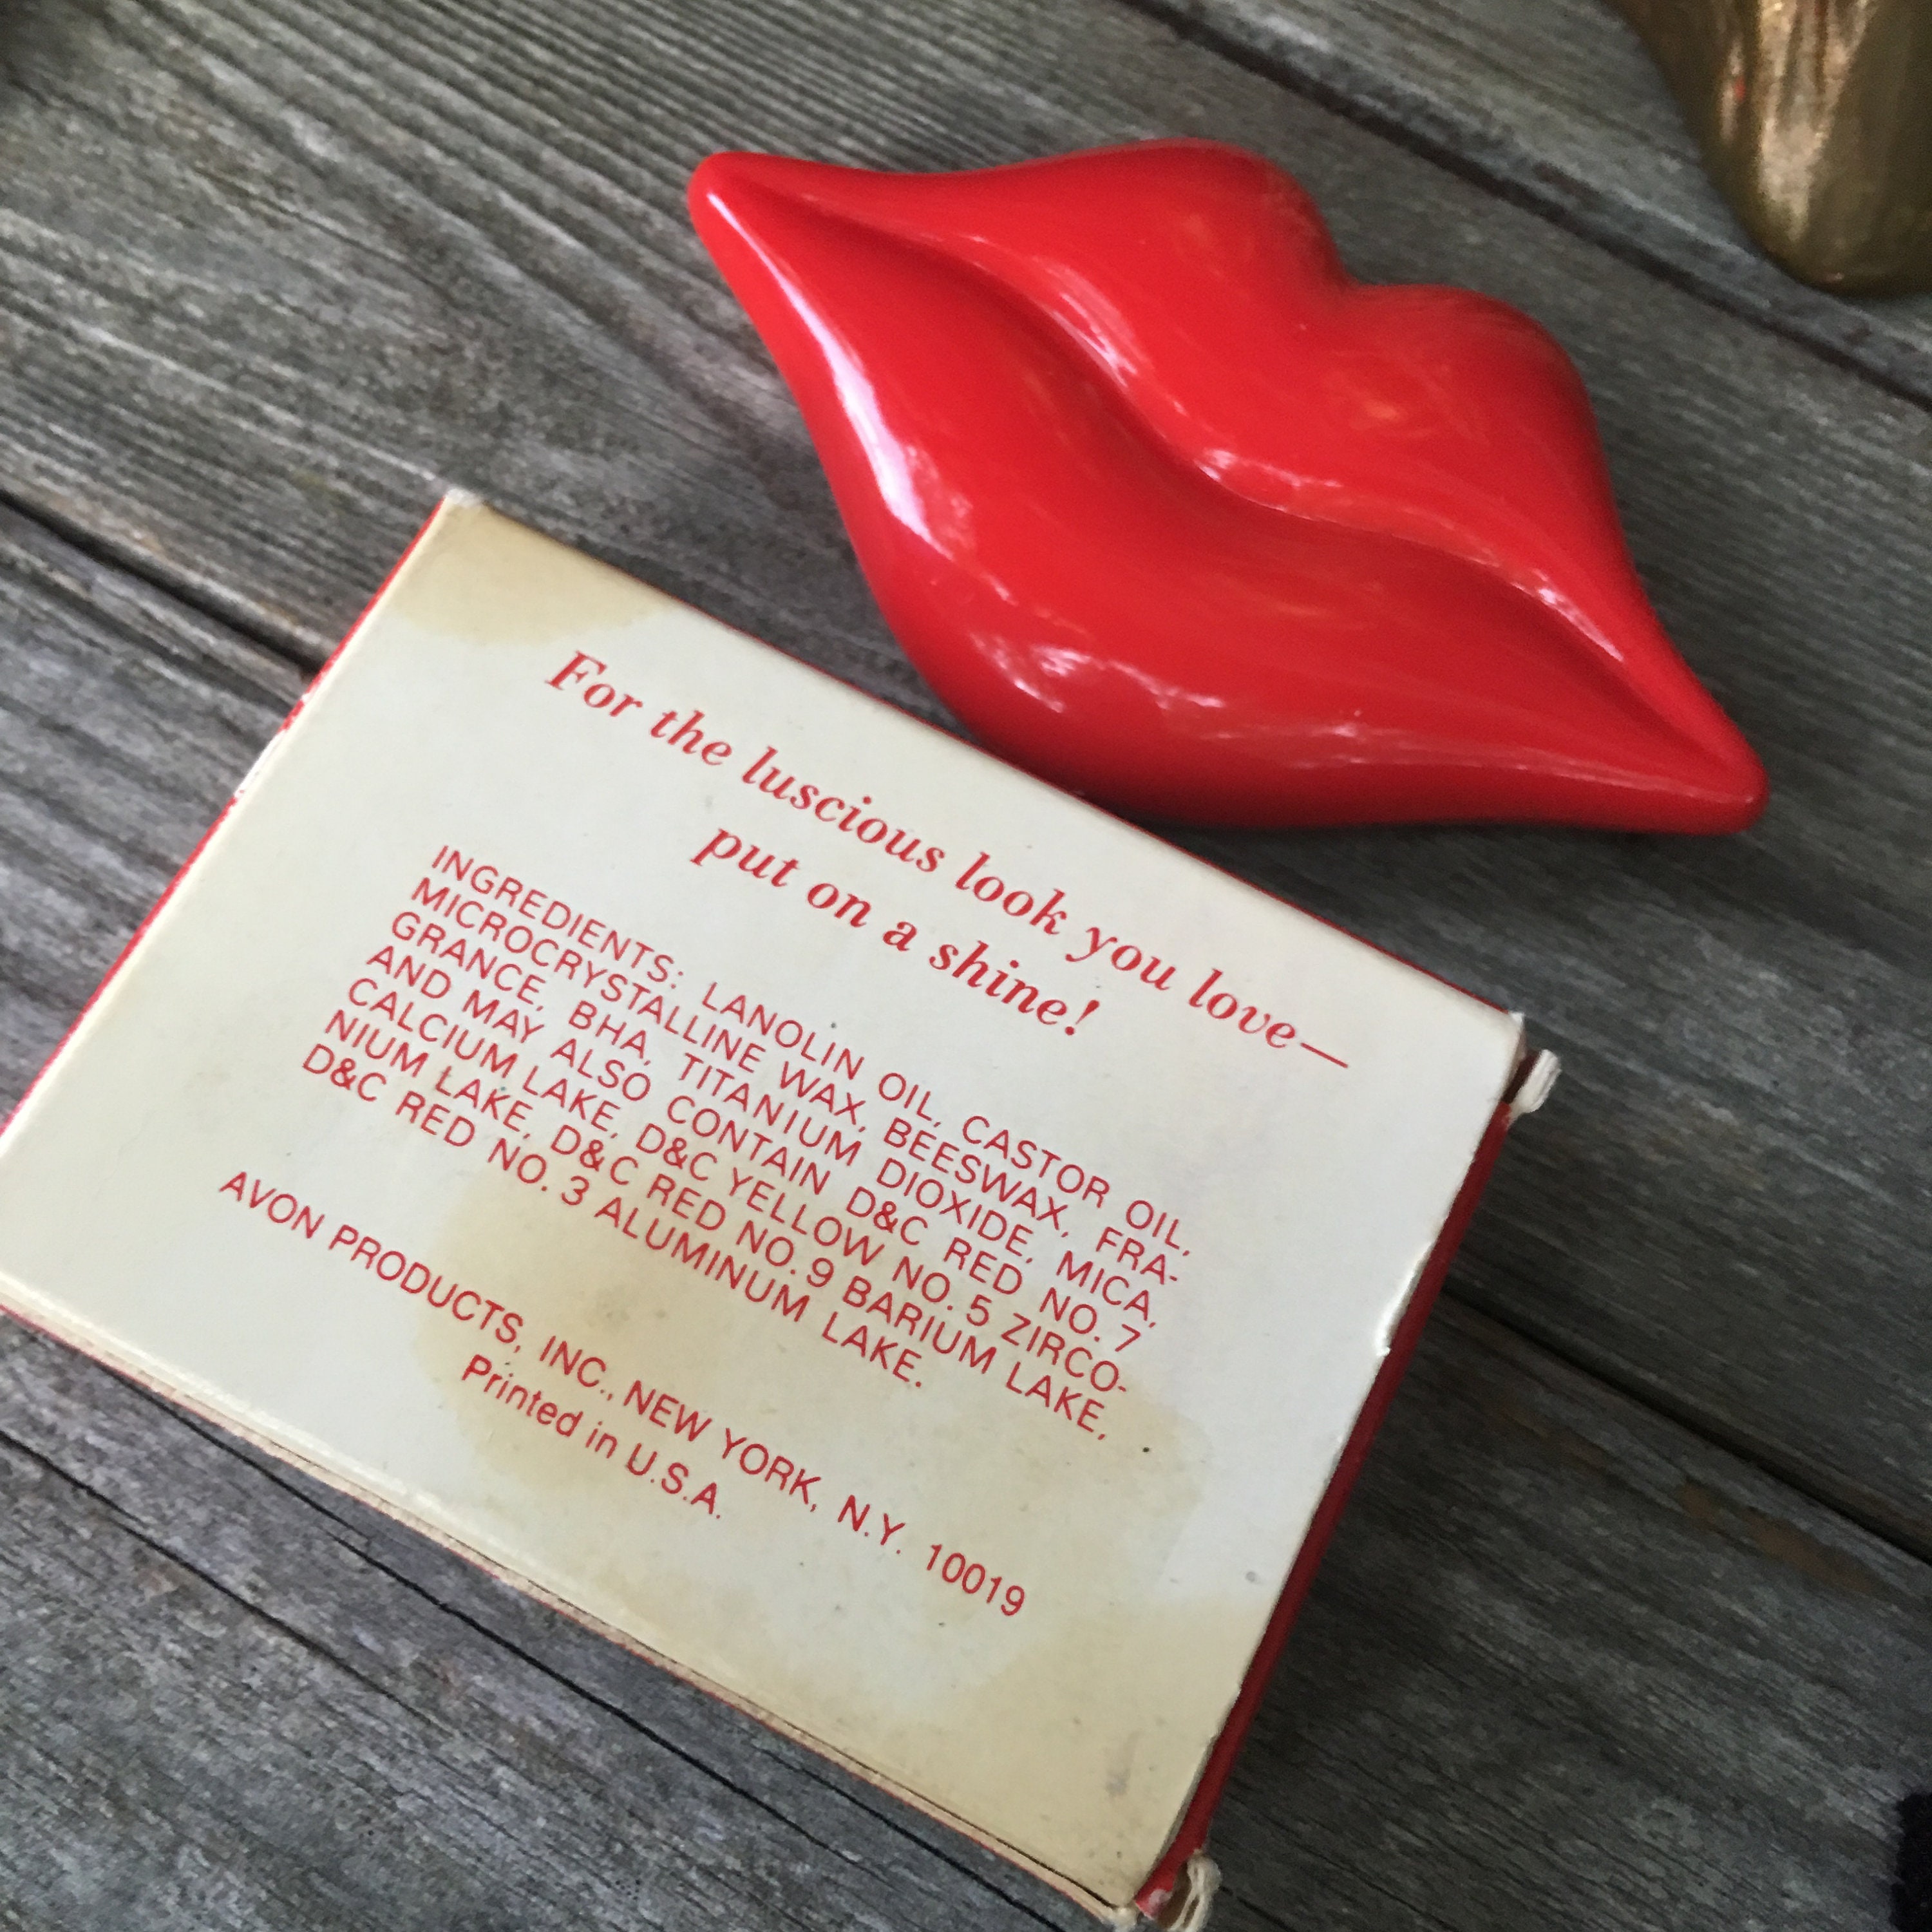 For the luscious look you love—
put on a shine!
INGREDIENTS: LANOLIN OIL, CASTOR OIL,
MICROCRYSTALLINE WAX, BEESWAX, FRA-
GRANCE, BHA, TITANIUM DIOXIDE, MICA,
AND MAY ALSO CONTAIN D&C RED NO. 7
CALCIUM LAKE, D&C YELLOW NO. 5 ZIRCO-
NIUM LAKE, D&C RED NO. 9 BARIUM LAKE,
D&C RED NO. 3 ALUMINUM LAKE.
AVON PRODUCTS, INC., NEW YORK, N.Y. 10019
Printed in U.S.A.